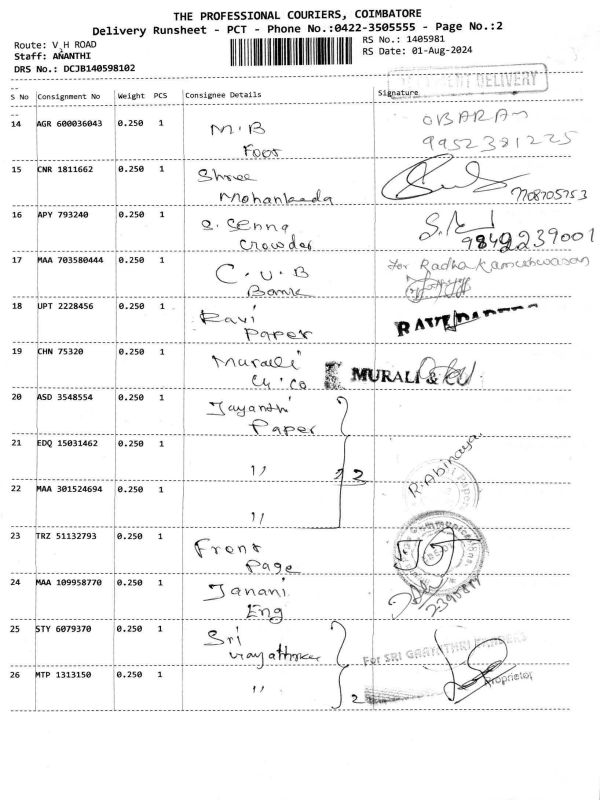 THE PROFESSIONAL COURIERS, COIMBATORE
Delivery Runsheet - PCT - Phone No.:0422-3505555 - Page No.:2
Route: V H ROAD RS No.: 1405981
Staff: ANANTHI RS Date: 01-Aug-2024
DRS No.: DCJB140598102
DELIVERY
--
S No Consignment No Weight PCS Consignee Details Signature
--
14 AGR 600036043 0.250 1 M.B
Foot
9952381225
15 CNR 1811662 0.250 1 Shree
Mohankada
7708705753
16 APY 793240 0.250 1 Senna
Crowder
9842239001
17 MAA 703580444 0.250 1 C.U.B
Bank
for Radha Kameshwaran
18 UPT 2228456 0.250 1 Ravi
Paper
RAVI PAPERS
19 CHN 75320 0.250 1 Murali
& Co
MURALI &
20 ASD 3548554 0.250 1 Jayanthi
Paper
21 EDQ 15031462 0.250 1 "
3
R. Abinaya
22 MAA 301524694 0.250 1 "
23 TRZ 51132793 0.250 1 Front
Page
24 MAA 109958770 0.250 1 Janani
Eng
25 STY 6079370 0.250 1 Sri
For SRI GAAYATHRI
26 MTP 1313150 0.250 1 "
2
Proprietor